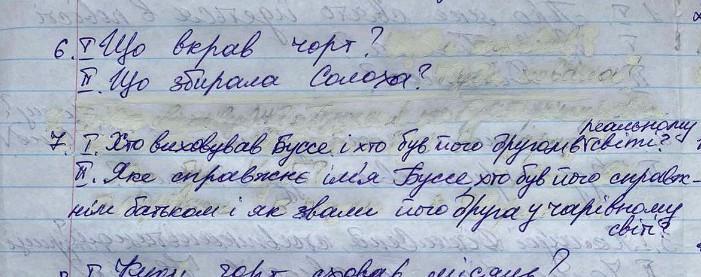 6. I Що вкрав чорт?
II. Що збирала Солоха?
7. I. Хто виховував Буссе і хто був його другом в реальному світі?
II. Яке справжнє ім'я Буссе, хто був його справж-
нім батьком і як звали його друга у чарівному
світі?
I. чорт сховав місяць?